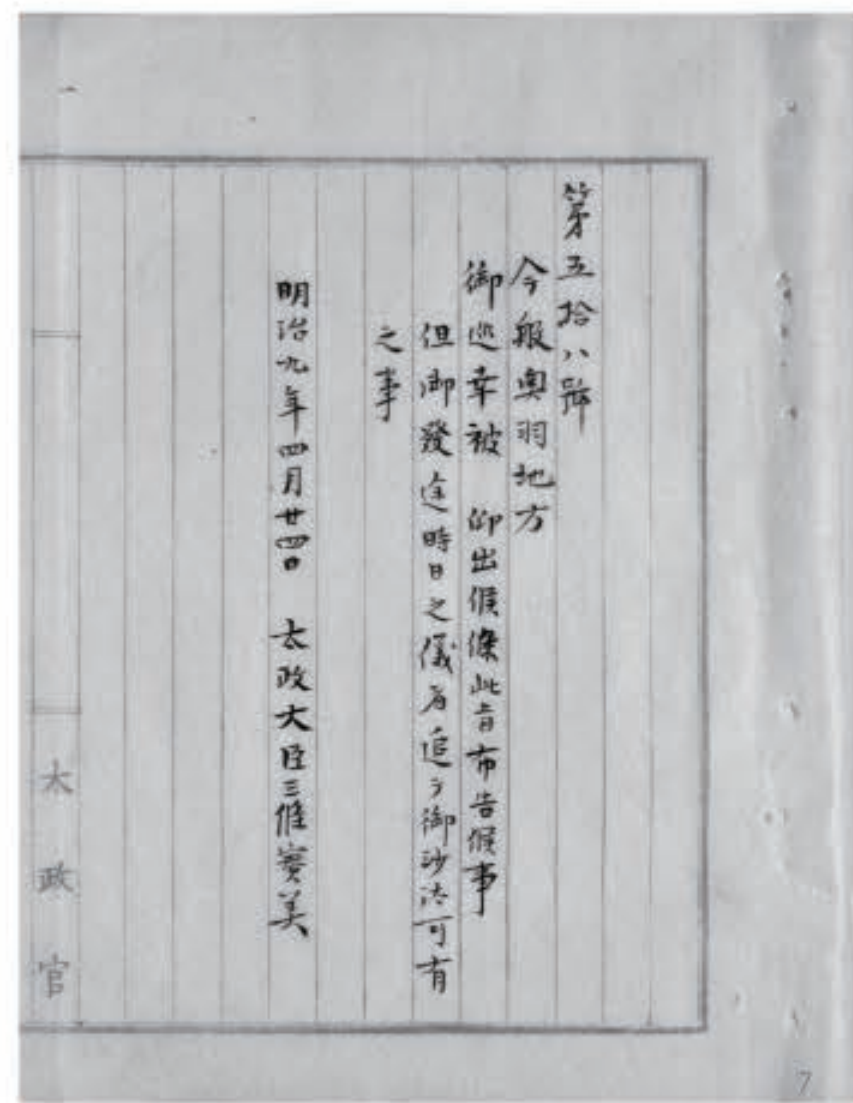 第五拾八號
今般奥羽地方
御巡幸被 仰出候條此旨布告候事
但御發途時日之儀者追テ御沙汰可有
之事
明治九年四月廿四日 太政大臣三條實美
太政官
7